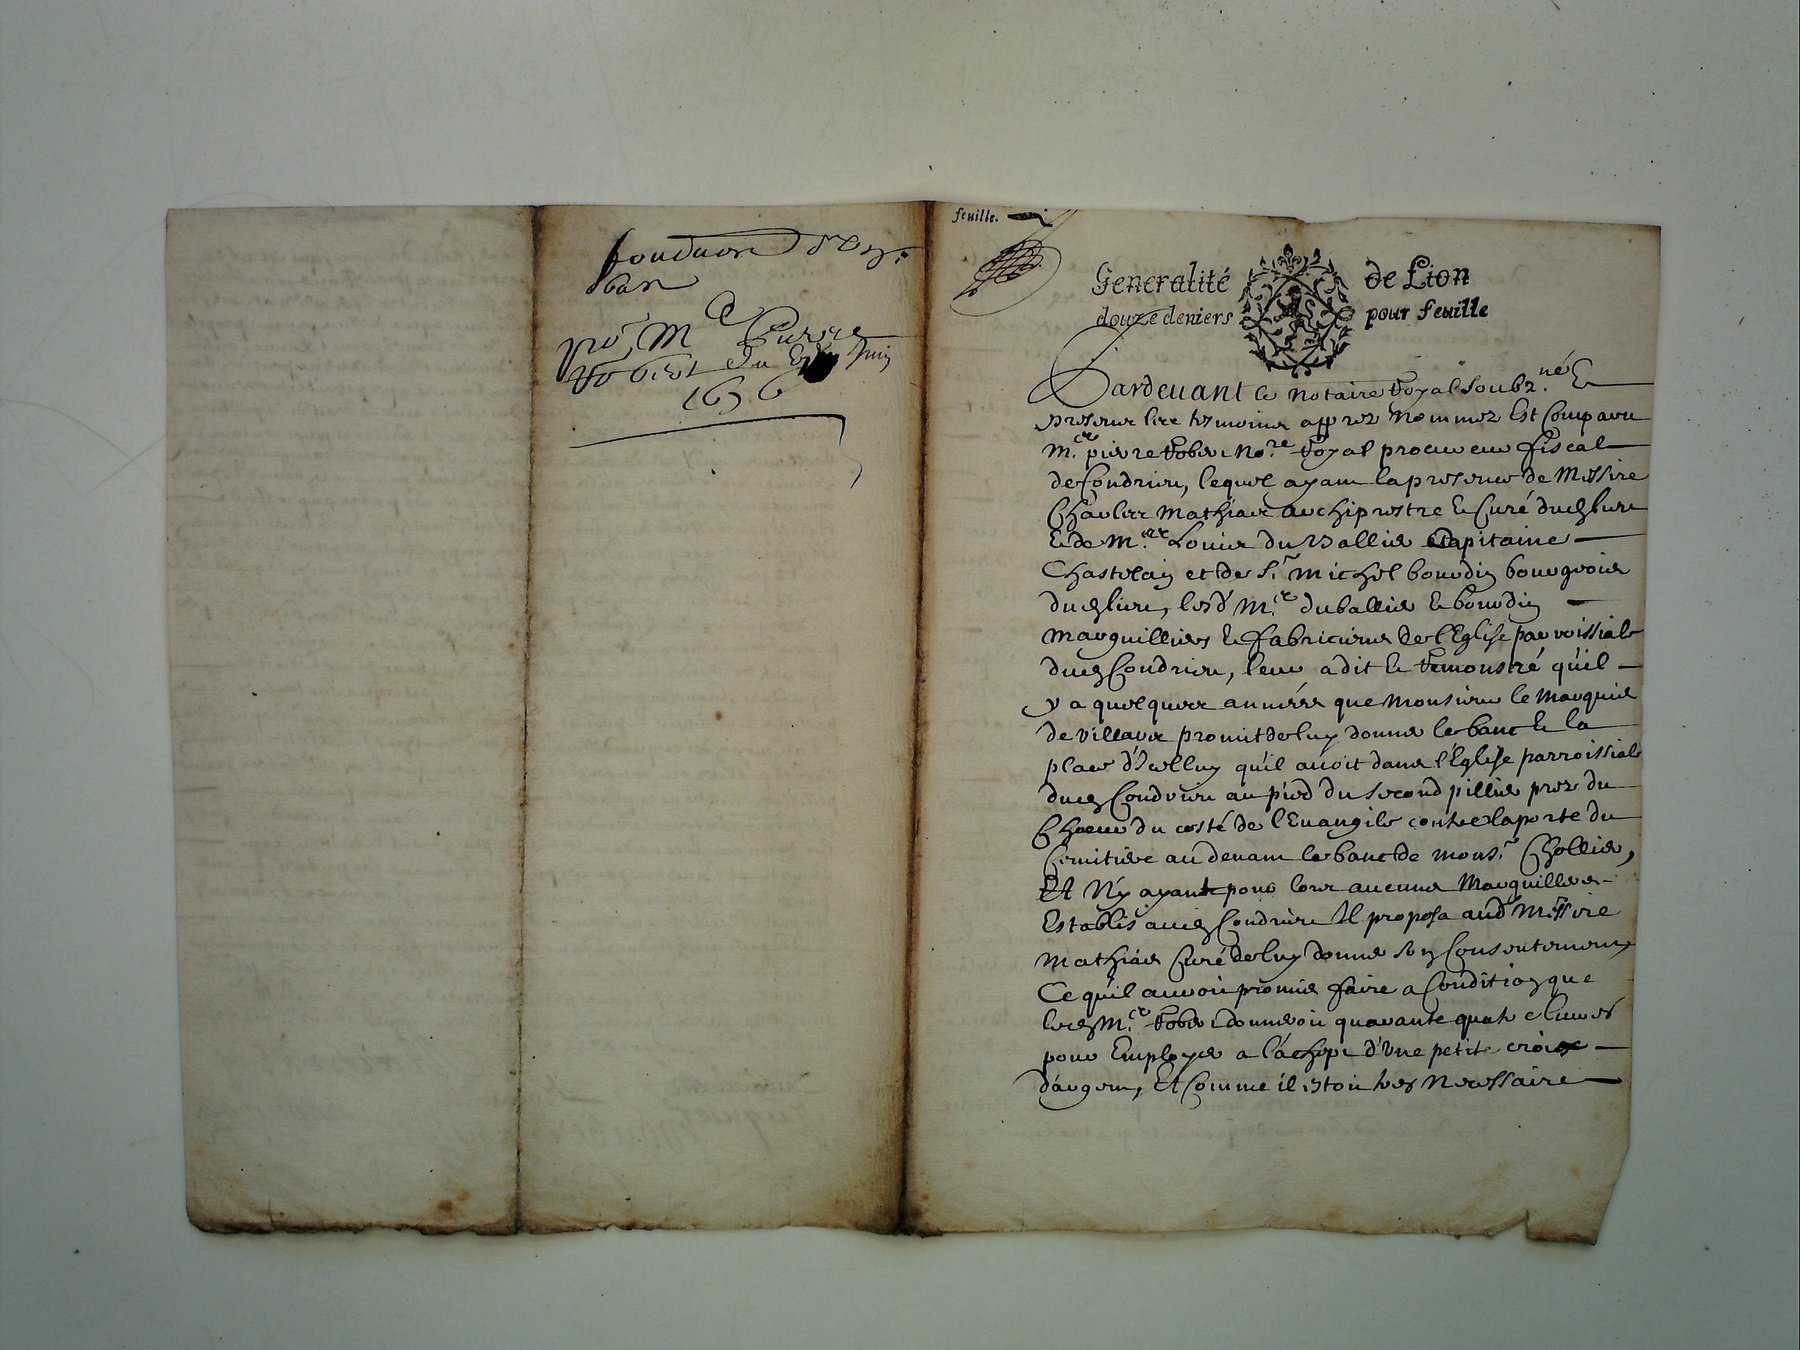 fonduon d'Vn
ban
pro Mᵉ Pierre
Robert du Juin
1676
feuille.
Generalité de Lion
douze deniers pour feuille
Pardeuant le notaire Royal soubz.né &
presence les tesmoins apprez nommez Est Comparu
M.re pierre Robert No.re Royal procureur fiscal
de Condrieu, lequel ayant la presence de Messire
Charles Mathias archiprestre & Curé dud lieu
& de M.re Louis du Vallier Capitaine
Chastelain et de S.r Michel bourdin bourgeois
dud lieu, lesd M.re duvallier & bourdin
Marguilliers & fabriciens de l'Eglise parroissiale
dud Condrieu, leur a dit & Remonstré qu'il
y a quelques années que Monsieur le Marquis
de villars promit de luy donner le banc & la
place d'Icelluy qu'il auoit dans l'Eglise parroissiale
dud Condrieu au pied du second pillier prez du
Choeur du costé de l'Euangile contre la porte du
Cemitiere au deuant le banc de Mons.r Chollier,
Et N'y ayant pour lors aucuns Marguilliers
Establis aud Condrieu Il proposa aud Messire
Mathias Curé de luy donner son Consentement
Ce qu'il auroit promis faire a Condition que
led M.re Robert donneroit quarante quatre liures
pour Employer a l'achept d'vne petite croix
d'argent, Et Comme il estoit tres Necessaire